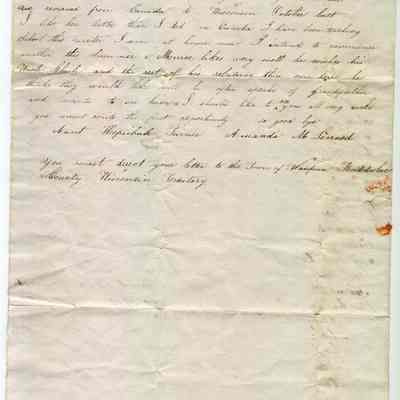 removed from Canada to Wisconsin October last
I like here better than I did in Canada I have been teaching
school this winter I am at home now I intend to commence
another this summer Monroe likes very well he wishes his
and the rest of his relatives were here he
thinks they would like much he often speaks of grandfather
and wants to see him I should like to see you all very much
you must write the first opportunity so good bye
Aunt Hepsibah Amanda M
You must direct your letter to the Town of
County Wisconsin Territory